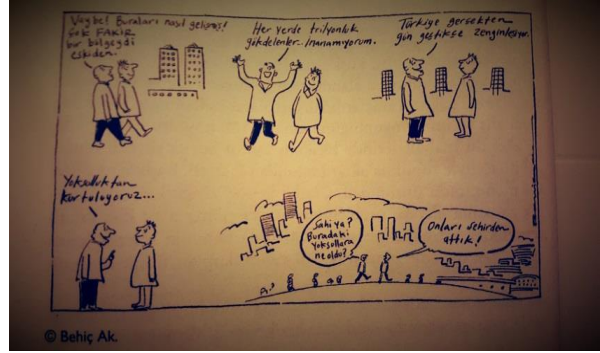 Vay be! Buraları nasıl gelişmiş!
Çok FAKİR
bir bölgeydi
eskiden.
Her yerde trilyonluk
gökdelenler... İnanamıyorum.
Türkiye gerçekten
gün geçtikçe zenginleşiyor.
Yoksulluktan
kurtuluyoruz...
Sahi ya?
Buradaki
yoksullara
ne oldu?
Onları şehirden
attık!
© Behiç Ak.